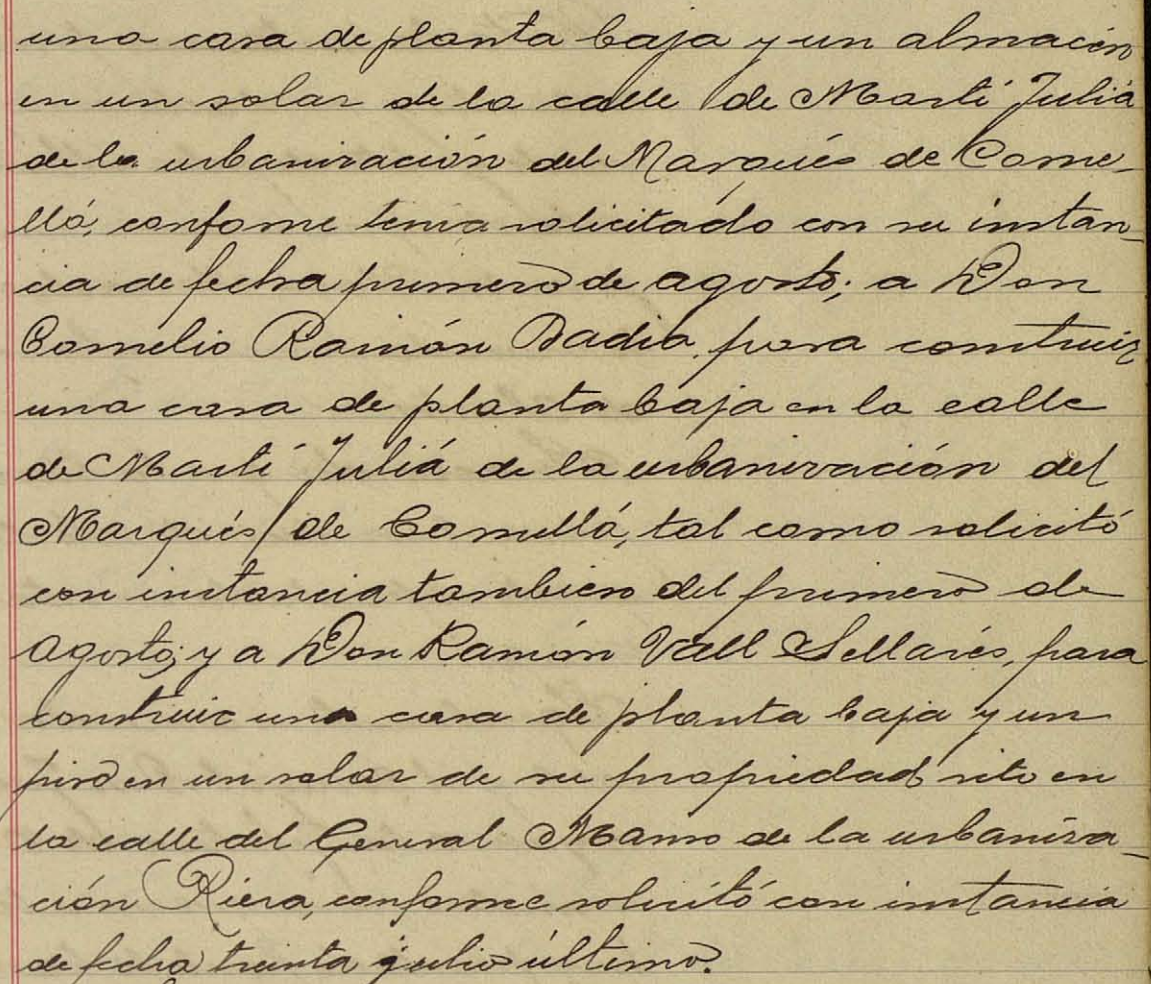 una casa de planta baja y un almacén
en un solar de la calle de Martí Juliá
de la urbanización del Marqués de Corne-
llá, conforme tenia solicitado con su instan-
cia de fecha primero de agosto; a Don
Cornelio Ramón Badia, para construir
una casa de planta baja en la calle
de Martí Juliá de la urbanización del
Marqués de Cornellá, tal como solicitó
con instancia tambien del primero de
agosto; y a Don Ramón Vall Sellarés, para
construir una casa de planta baja y un
piso en un solar de su propiedad sito en
la calle del General Manso de la urbaniza-
ción Riera, conforme solicitó con instancia
de fecha treinta julio último.